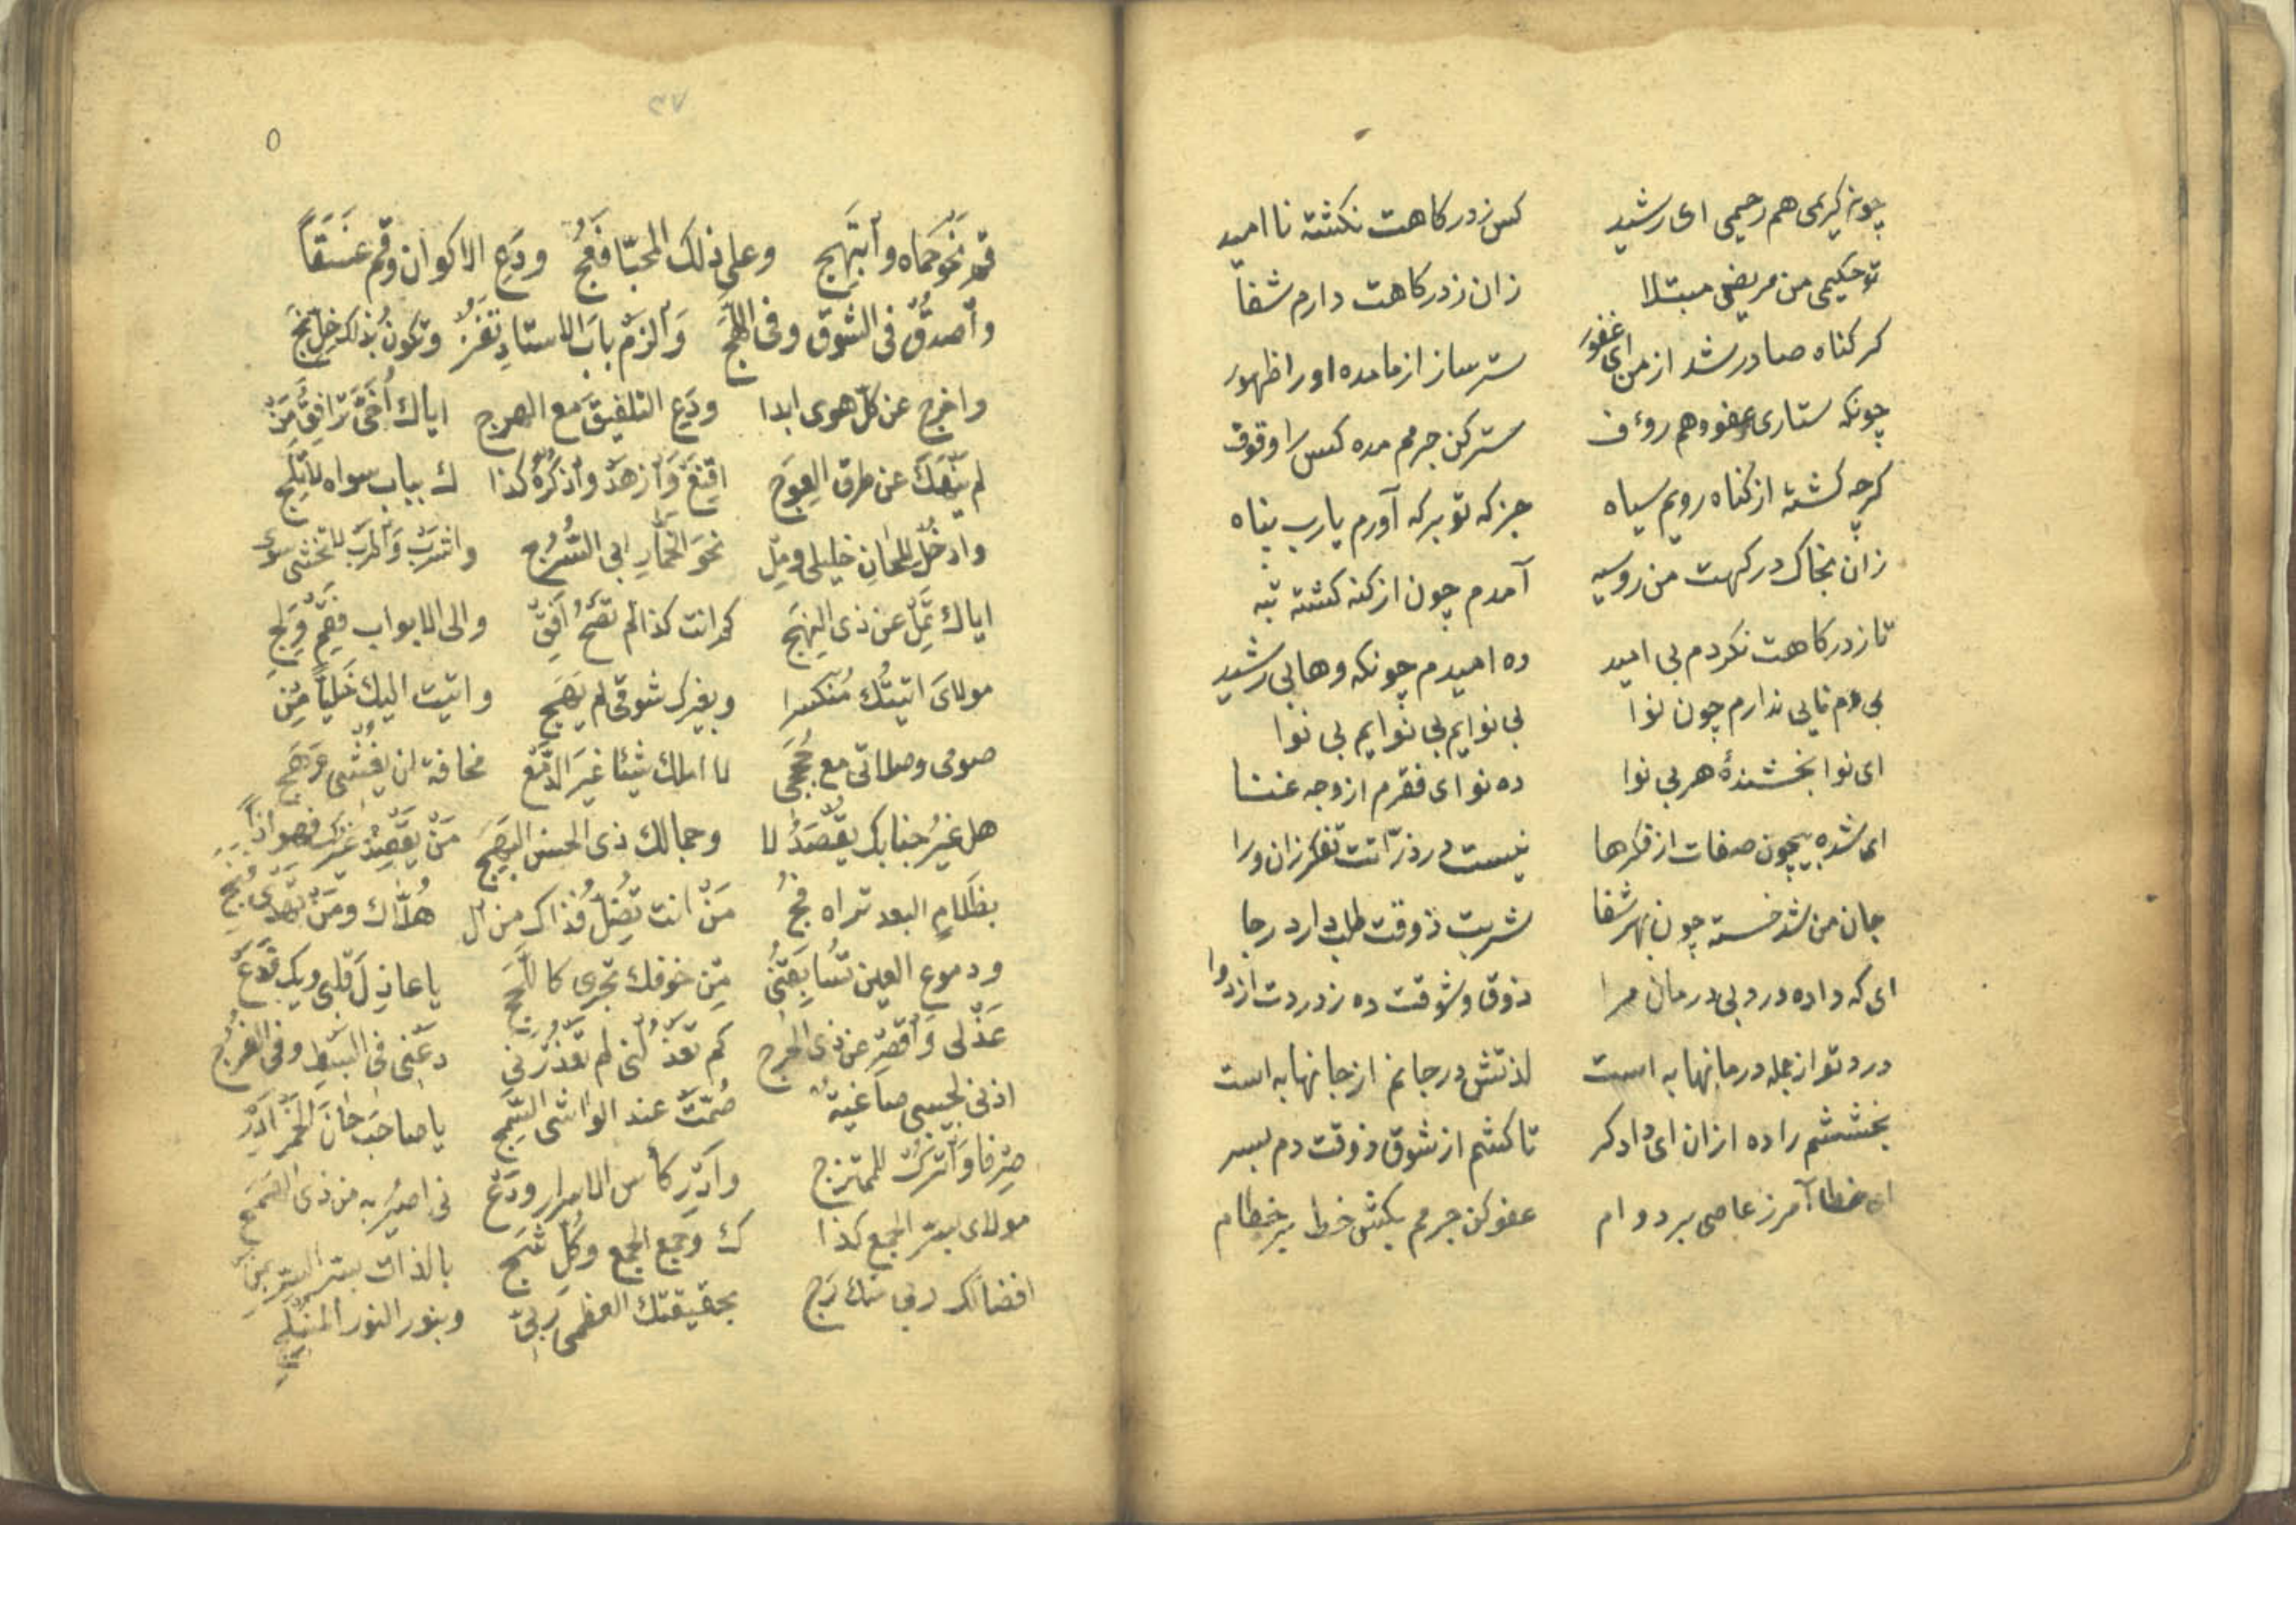 چونه کریمی هم رحیمی ای رشید کس ز درکاهت نکشته نا امید
تو حکیمی من مریضی مبتلا زان ز درکاهت دارم شفا
کر کناه صادر شد از من ای غفور ستر ساز از ما مده او را ظهور
چونکه ستاری عفو و هم روءف ستر کن جرمم مده کس را وقوف
کرچه کشته از کناه رویم سیاه جز که تو بر که آورم یارب پناه
زان بخاک درکهت من روسیه آمدم چون از کنه کشته تبه
تا ز درکاهت نکردم بی امید ده امیدم چونکه وهابی رشید
ندارم چون نوا بی نوایم بی نوایم بی نوا
ای نوا بخشندۀ هر بی نوا ده نوای فقرم از وجه غنا
ای شده بیچون صفات از فکرها نیست در ذرّاتت تفکر زان ورا
جان من شد خسته چون بهر شفا شربت ذوقت طلب دارد رجا
ای که داده درد بی درمان مرا ذوق و شوقت ده ز دردت از دوا
درد تو از جمله درمانها به است لذتش در جانم از جانها به است
بخششم را ده ازان ای دادکر تا کشم از شوق ذوقت دم بسر
ای خطا آمرز عاصی بر دوام عفو کن جرمم بکش خط بر خطام
٣٧
٥
قم نَحوَ حَماه وأبتَهِج وعلى ذلك المحيّا فَعُج ودَعِ الاكوان وقم غسَقاً
وأصدُق فى الشوق وفى اللَّهَج وَالزَم بابَ الاستاذِ تَفُز وتكونُ بذاك خِلّ نَج
واخرج عن كلّ هوى ابدا ودَعِ التلفيقَ مع الهرج اياك أُخَىَّ تُرافِق مَن
لم يَنهَكَ عن طرق العِوَج اقنَع وَازهَد واذكُرهُ كذا ك بباب سواه لا تَلِج
وادخُل للحانِ خليلى ومِل نحوَ الخمّار ابى السُرُج واشرَب وَاطرَب لا تخشى سوى
اياك تَمِل عن ذى النَهَج كم انت كذا لم تَصحُ افِق والى الابواب فَقُم ولِج
مولاىَ اتيتُك مُنكسرا وبغيرك شوقى لم يَهِج واتيت اليك خَلياً مِن
صومى وصلاتى مع حُجَجى لا املك شيئا غيرَ الدَمع مخافة ان يُفشى وَهَجى
هل غيرُ جنابك يُقصَدُ لا وجمالك ذى الحسن البَهِج مَن يقصِدُ غيرَك فهو اذاً
بظَلامِ البعد تراه فُج مَن انت تُضِلُّ فذاك من ال هُلّاك ومَن تهدى فنُجِ
ودموع العين تُسابِقُنى مِن خوفك تجرى كاللُّجَج يا عاذِلَ قلبى ويك فدَع
عَذلى وَأقصِر عن ذى الحرج كم تعذُلُنى لم تَعذُرنى دعنى فى البسط وفى الفرج
اذنى لحبيبى صاغيةٌ صُمَّت عند الواشى السَّمِج يا صاحبَ حانِ الخمر أدِر
صِرفا وَاترُك للممتزج وأدِر كأس الاسرار ودَع نى اصيرُ به من ذى الهمَج
مولاى بسرّ الجمع كذا ك وجمع الجمع وكلّ شَج بالذات بسرّ السرّ بمن
افضالك ربى منك رُج بحقيقتك العظمى ربّى وبنور النور المنبلج